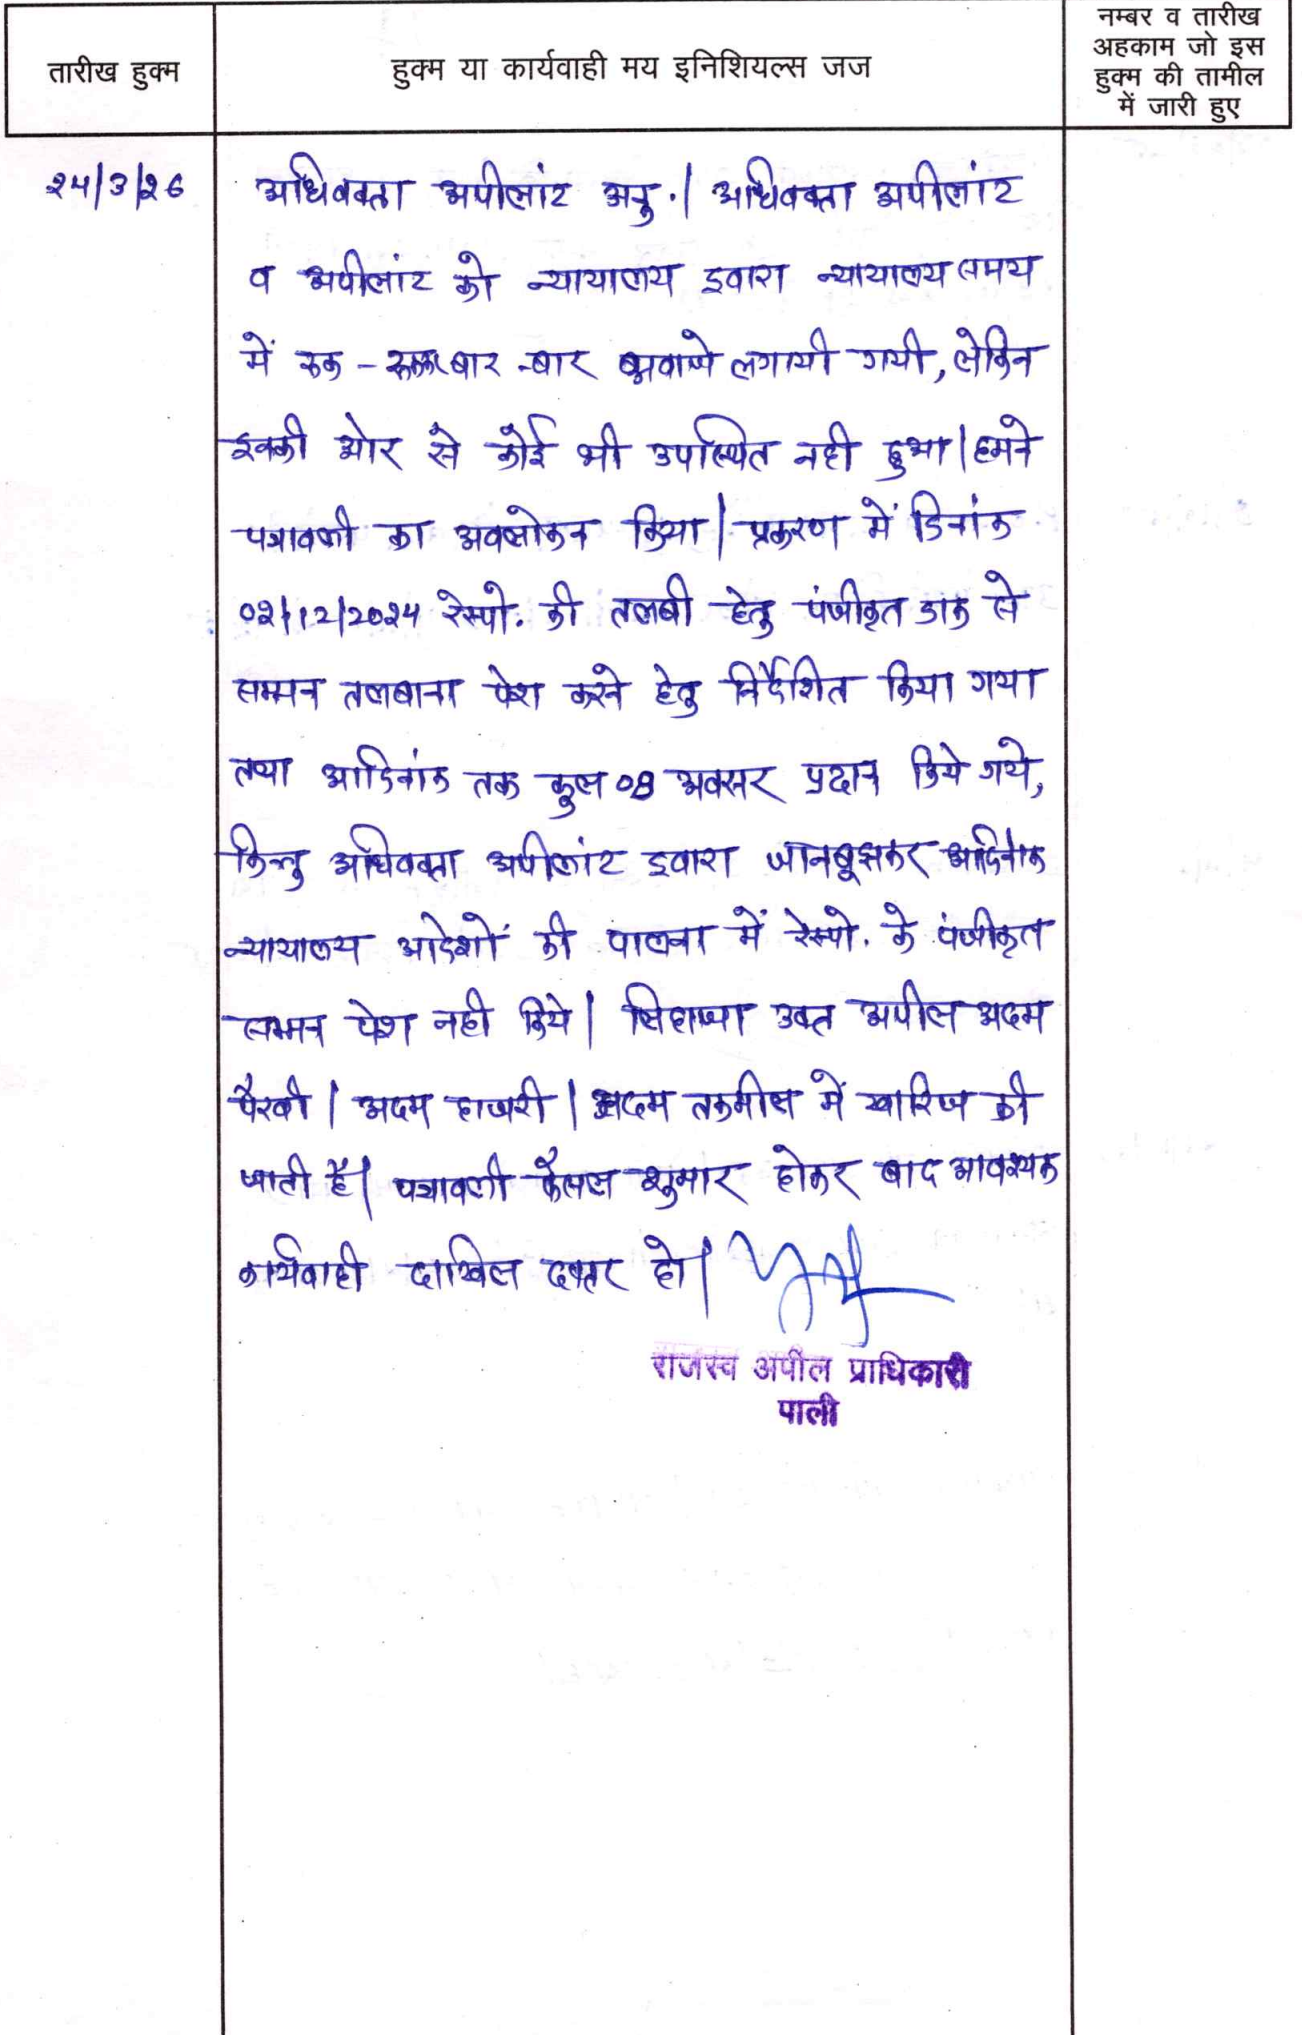 तारीख हुक्म
हुक्म या कार्यवाही मय इनिशियल्स जज
नम्बर व तारीख
अहकाम जो इस
हुक्म की तामील
में जारी हुए
24/3/26
अधिवक्ता अपीलांट अनु.| अधिवक्ता अपीलांट
व अपीलांट को न्यायालय द्वारा न्यायालय समय
में रुक - रूककर बार-बार आवाजे लगायी गयी, लेकिन
इनकी ओर से कोई भी उपस्थित नही हुआ | हमने
पत्रावली का अवलोकन किया | प्रकरण में दिनांक
02/12/2024 रेस्पो. की तलबी हेतु पंजीकृत डाक से
सम्मन तलबाना पेश करने हेतु निर्देशित किया गया
तथा आदिनांक तक कुल 08 अवसर प्रदान किये गये,
किन्तु अधिवक्ता अपीलांट द्वारा जानबूझकर आदिनांक
न्यायालय आदेशों की पालना में रेस्पो. के पंजीकृत
सम्मन पेश नही किये | लिहाजा उक्त अपील अदम
पैरवी | अदम हाजरी | अदम तकमील में खारिज की
जाती है | पत्रावली फैसल शुमार होकर बाद आवश्यक
कार्यवाही दाखिल दफ्तर हो |
राजस्व अपील प्राधिकारी
पाली